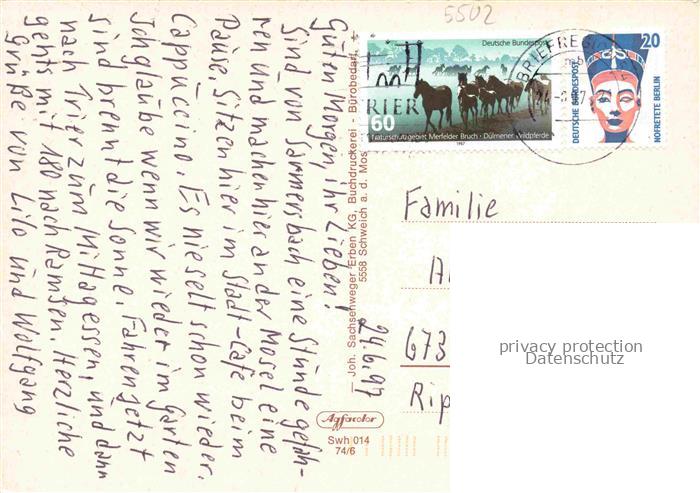 5502
Deutsche Bundespost
60
Naturschutzgebiet Merfelder Bruch · Dülmener Wildpferde
1987
TRIER
BRIEFREGION
20
DEUTSCHE BUNDESPOST
NOFRETETE BERLIN
Guten Morgen, ihr Lieben!
Sind von Sammersbach eine Stunde gefah-
ren und machen hier an der Mosel eine
Pause. Sitzen hier im Stadt-Cafe beim
Cappuccino. Es nieselt schon wieder.
Ich glaube wenn wir wieder im Garten
sind brennt die Sonne. Fahren jetzt
nach Trier zum Mittagessen, und dann
gehts mit 180 nach Ramsen. Herzliche
Grüße von Lilo und Wolfgang
24.6.97
Joh. Sachsenweger Erben KG, Buchdruckerei - Bürobedarf,
5558 Schweich a. d. Mos
Familie
673
Rip
Agfacolor
Swh 014
74/6
privacy protection
Datenschutz